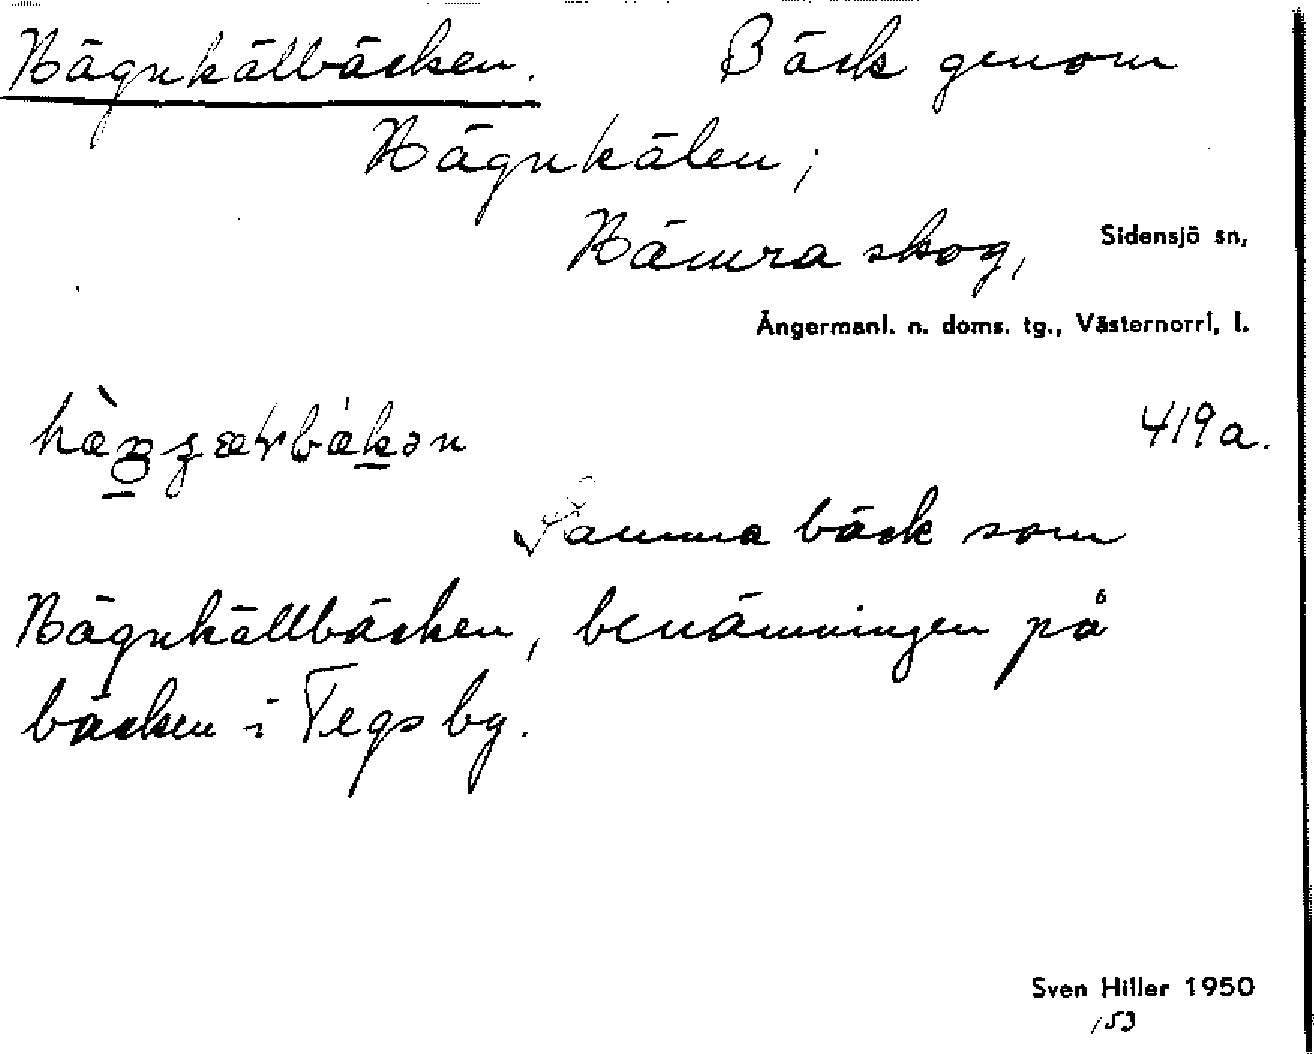 Hägnkälbäcken. Bäck genom
Hägnkälen;
Hämra skog, Sidensjö sn,
Ångermanl. n. doms. tg., Västernorrl. l.
419a.
Samma bäck som
Hägnkällbäcken, benämningen på
bäcken i Tegsby.
Sven Hiller 1950
/53